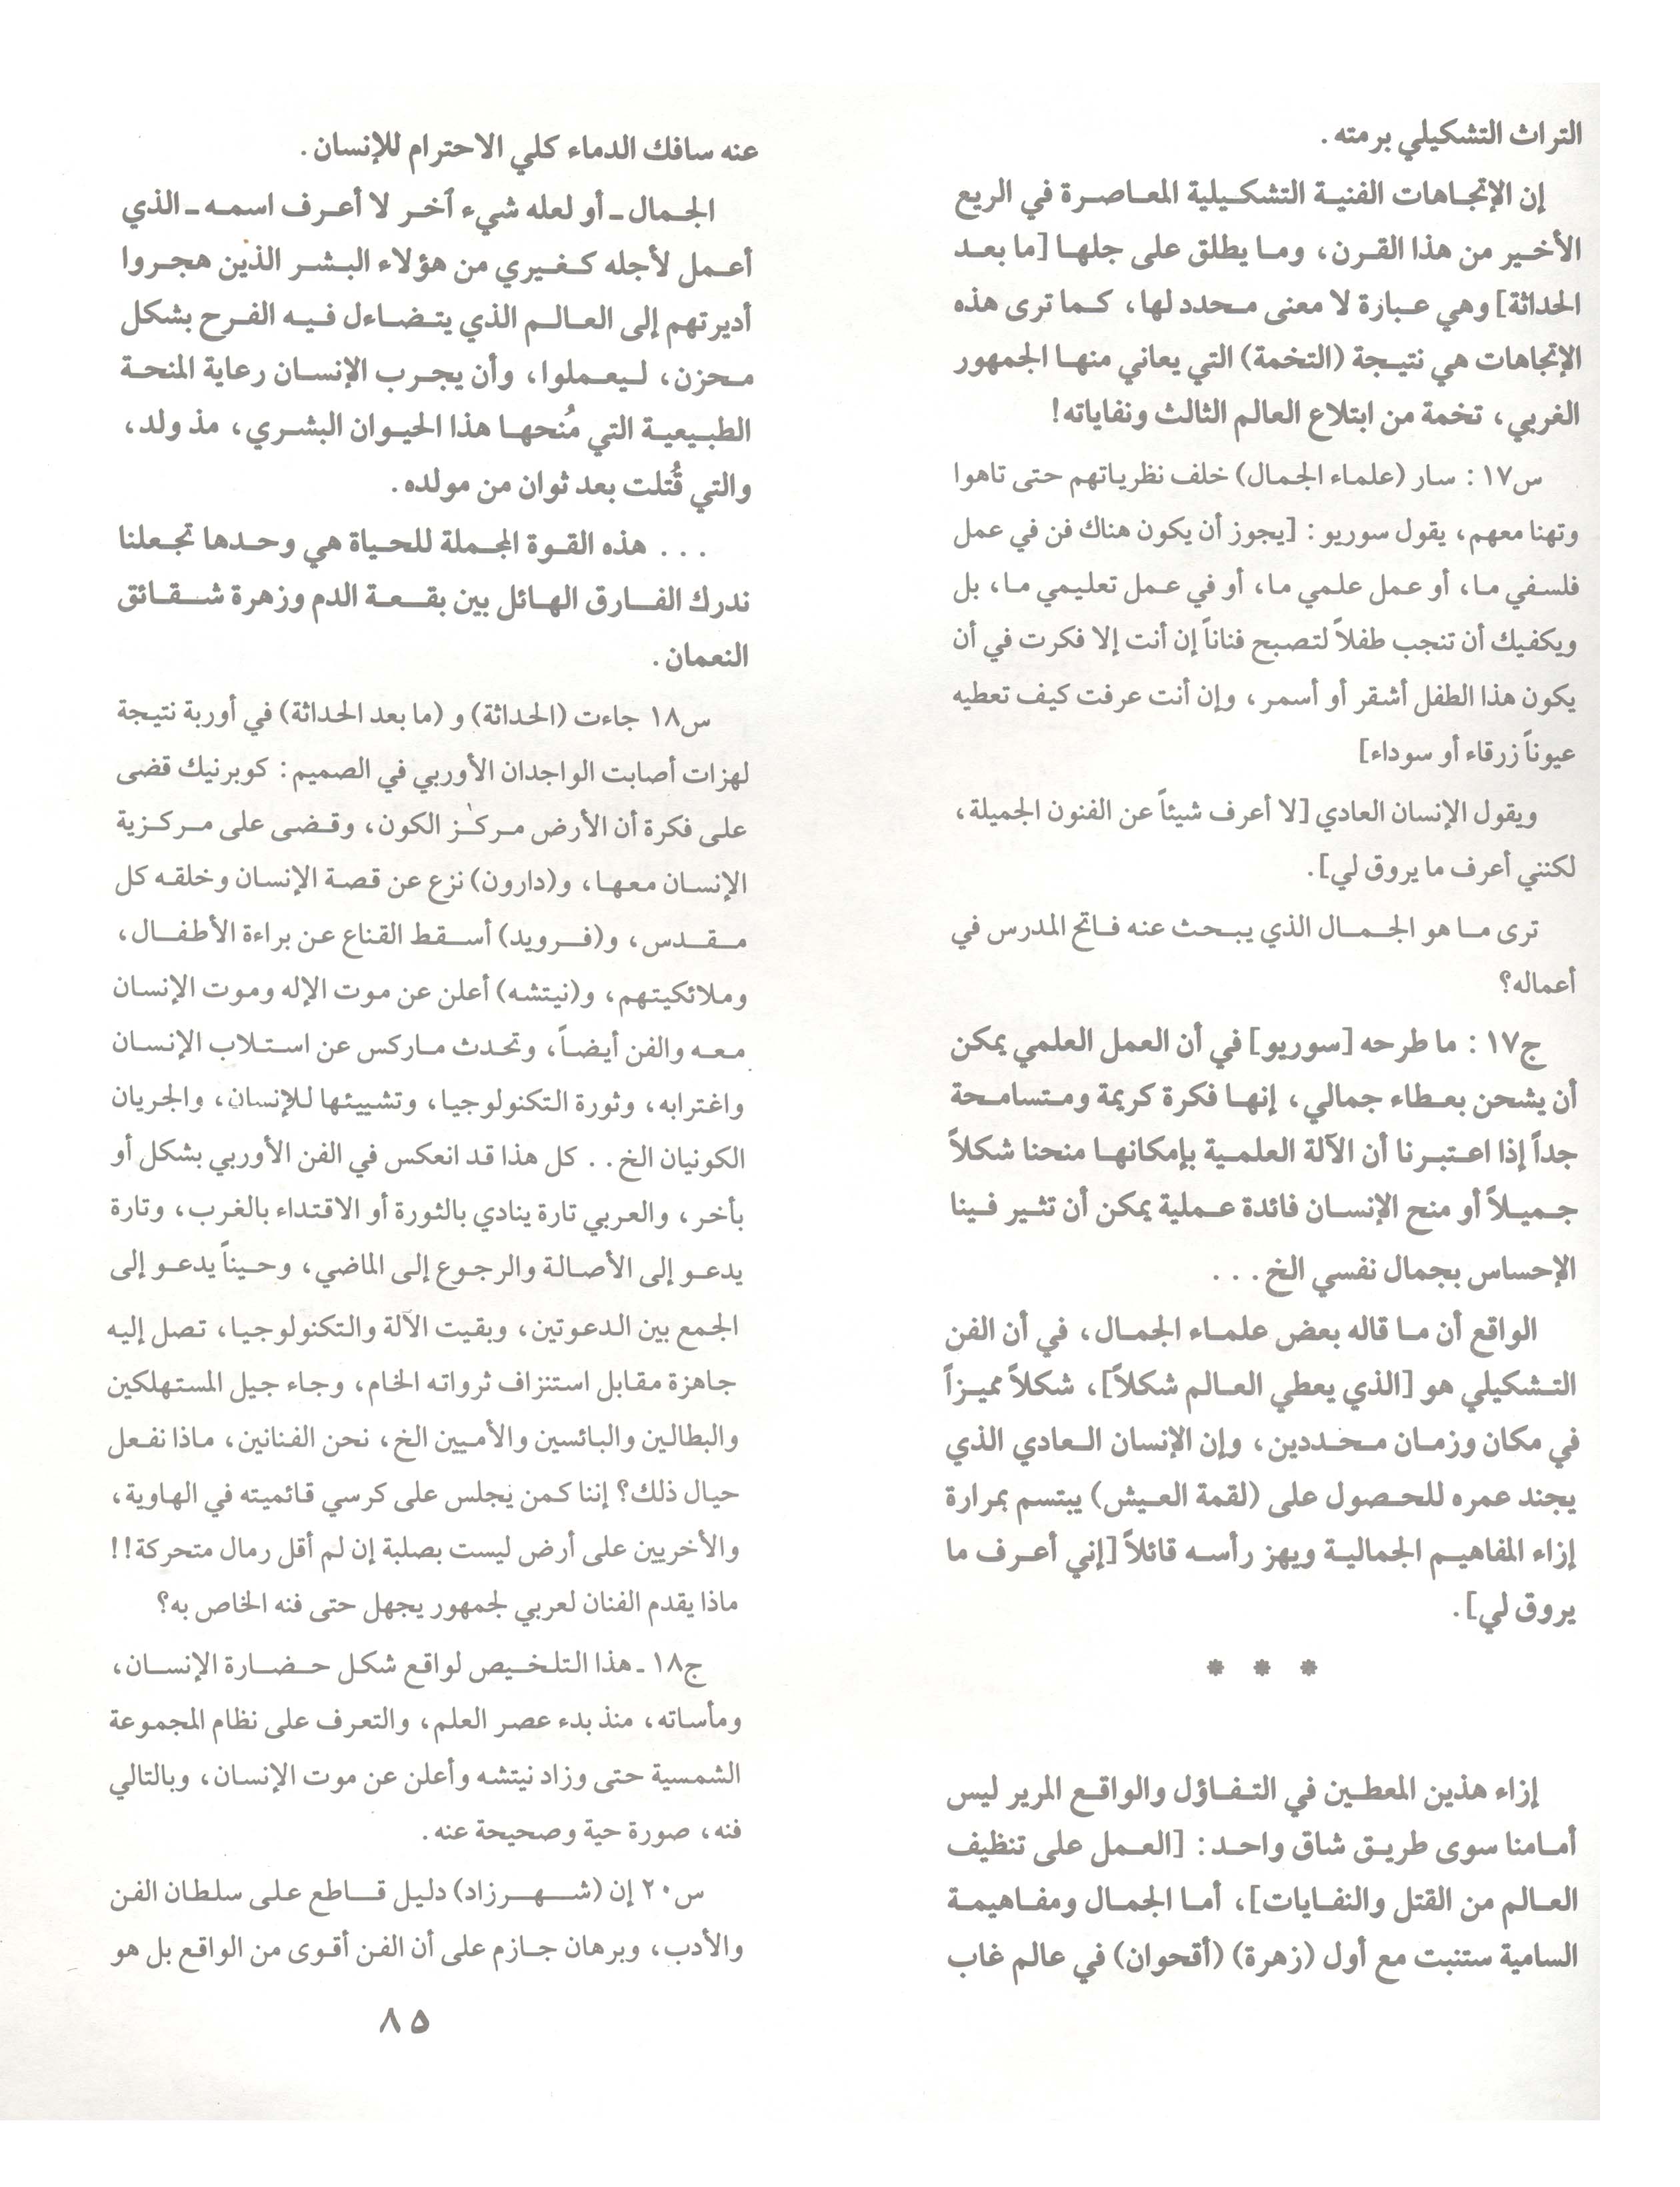 التراث التشكيلي برمته.
إن الإتجاهات الفنية التشكيلية المعاصرة في الربع
الأخير من هذا القرن، وما يطلق على جلها [ما بعد
الحداثة] وهي عبارة لا معنى محدد لها، كما ترى هذه
الإتجاهات هي نتيجة (التخمة) التي يعاني منها الجمهور
الغربي، تخمة من ابتلاع العالم الثالث ونفاياته!
س١٧: سار (علماء الجمال) خلف نظرياتهم حتى تاهوا
وتهنا معهم، يقول سوريو: [يجوز أن يكون هناك فن في عمل
فلسفي ما، أو عمل علمي ما، أو في عمل تعليمي ما، بل
ويكفيك أن تنجب طفلاً لتصبح فناناً إن أنت إلا فكرت في أن
يكون هذا الطفل أشقر أو أسمر، وإن أنت عرفت كيف تعطيه
عيوناً زرقاء أو سوداء]
ويقول الإنسان العادي [لا أعرف شيئاً عن الفنون الجميلة،
لكنني أعرف ما يروق لي].
ترى ما هو الجمال الذي يبحث عنه فاتح المدرس في
أعماله؟
ج١٧: ما طرحه [سوريو] في أن العمل العلمي يمكن
أن يشحن بعطاء جمالي، إنها فكرة كريمة ومتسامحة
جداً إذا اعتبرنا أن الآلة العلمية بإمكانها منحنا شكلاً
جميلاً أو منح الإنسان فائدة عملية يمكن أن تثير فينا
الإحساس بجمال نفسي الخ...
الواقع أن ما قاله بعض علماء الجمال، في أن الفن
التشكيلي هو [الذي يعطي العالم شكلاً]، شكلاً مميزاً
في مكان وزمان محددين، وإن الإنسان العادي الذي
يجند عمره للحصول على (لقمة العيش) يبتسم بمرارة
إزاء المفاهيم الجمالية ويهز رأسه قائلاً [إني أعرف ما
يروق لي].
* * *
إزاء هذين المعطين في التفاؤل والواقع المرير ليس
أمامنا سوى طريق شاق واحد: [العمل على تنظيف
العالم من القتل والنفايات]، أما الجمال ومفاهيمة
السامية ستنبت مع أول (زهرة) (أقحوان) في عالم غاب
عنه سافك الدماء كلي الاحترام للإنسان.
الجمال ـ أو لعله شيء آخر لا أعرف اسمه ـ الذي
أعمل لأجله كغيري من هؤلاء البشر الذين هجروا
أديرتهم إلى العالم الذي يتضاءل فيه الفرح بشكل
محزن، ليعملوا، وأن يجرب الإنسان رعاية المنحة
الطبيعية التي مُنحها هذا الحيوان البشري، مذ ولد،
والتي قُتلت بعد ثوان من مولده.
... هذه القوة المجملة للحياة هي وحدها تجعلنا
ندرك الفارق الهائل بين بقعة الدم وزهرة شقائق
النعمان.
س١٨ جاءت (الحداثة) و (ما بعد الحداثة) في أوربة نتيجة
لهزات أصابت الواجدان الأوربي في الصميم: كوبرنيك قضى
على فكرة أن الأرض مركز الكون، وقضى على مركزية
الإنسان معها، و(دارون) نزع عن قصة الإنسان وخلقه كل
مقدس، و(فرويد) أسقط القناع عن براءة الأطفال،
وملائكيتهم، و(نيتشه) أعلن عن موت الإله وموت الإنسان
معه والفن أيضاً، وتحدث ماركس عن استلاب الإنسان
واغترابه، وثورة التكنولوجيا، وتشييئها للإنسان، والجريان
الكونيان الخ.. كل هذا قد انعكس في الفن الأوربي بشكل أو
بأخر، والعربي تارة ينادي بالثورة أو الاقتداء بالغرب، وتارة
يدعو إلى الأصالة والرجوع إلى الماضي، وحيناً يدعو إلى
الجمع بين الدعوتين، وبقيت الآلة والتكنولوجيا، تصل إليه
جاهزة مقابل استنزاف ثرواته الخام، وجاء جيل المستهلكين
والبطالين والبائسين والأميين الخ، نحن الفنانين، ماذا نفعل
حيال ذلك؟ إننا كمن يجلس على كرسي قائميته في الهاوية،
والأخريين على أرض ليست بصلبة إن لم أقل رمال متحركة!!
ماذا يقدم الفنان لعربي لجمهور يجهل حتى فنه الخاص به؟
ج١٨ ـ هذا التلخيص لواقع شكل حضارة الإنسان،
ومأساته، منذ بدء عصر العلم، والتعرف على نظام المجموعة
الشمسية حتى وزاد نيتشه وأعلن عن موت الإنسان، وبالتالي
فنه، صورة حية وصحيحة عنه.
س٢٠ إن (شهرزاد) دليل قاطع على سلطان الفن
والأدب، وبرهان جازم على أن الفن أقوى من الواقع بل هو
٨٥